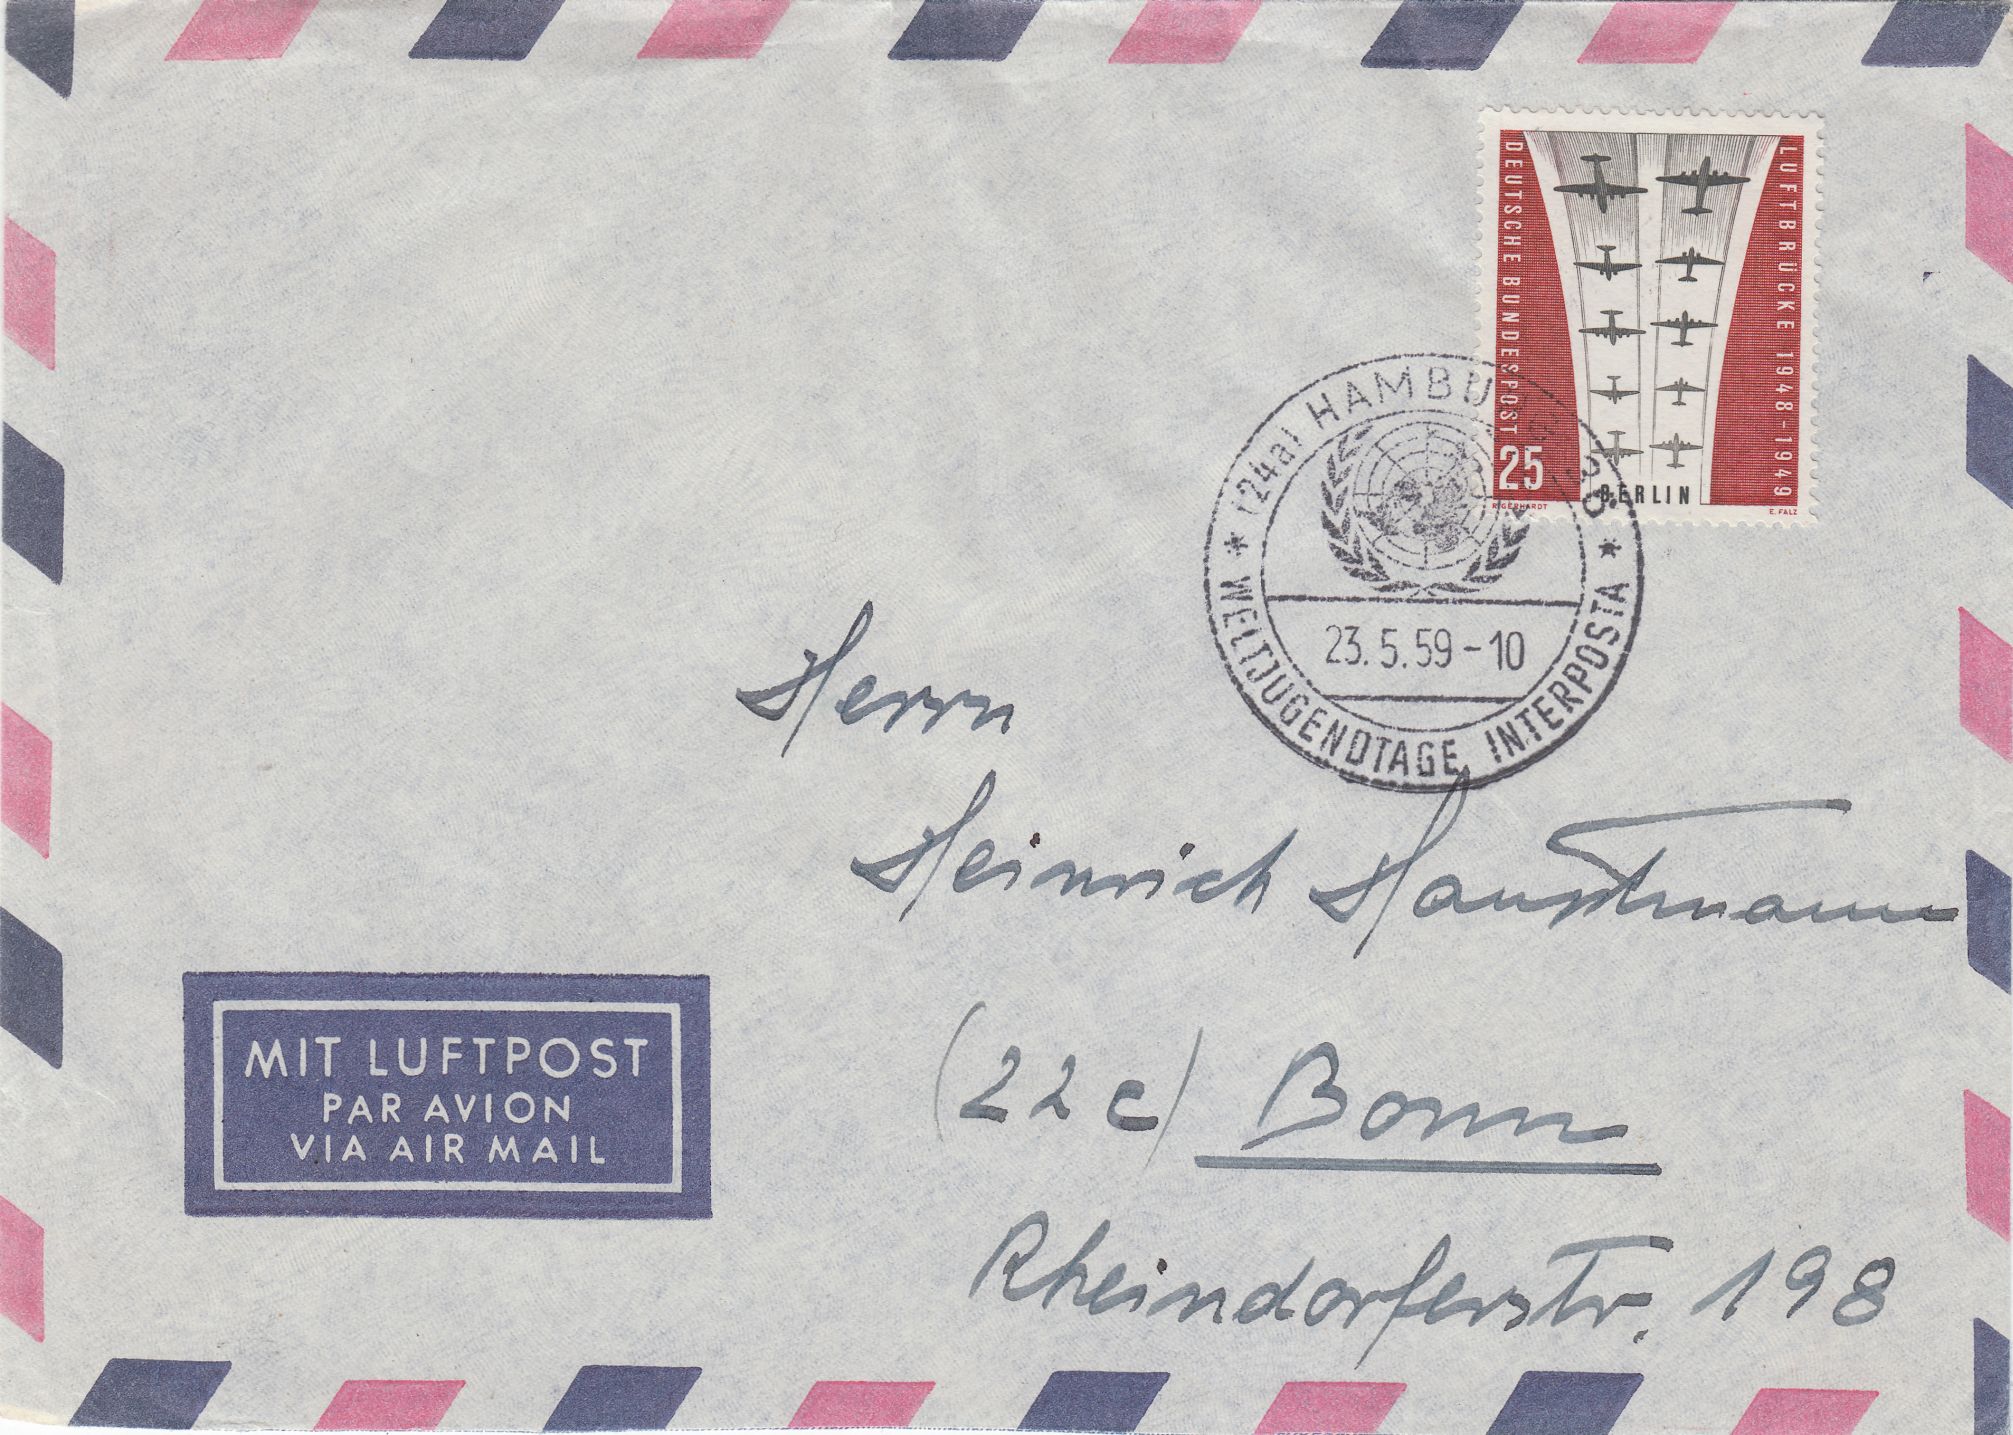 DEUTSCHE BUNDESPOST
LUFTBRÜCKE 1948-1949
25
BERLIN
R. GERHARDT
E. FALZ
(24a) HAMBURG 36
23.5.59-10
WELTJUGENDTAGE, INTERPOSTA
Herrn
Heinrich Hauptmann
(22c) Bonn
Rheindorferstr. 198
MIT LUFTPOST
PAR AVION
VIA AIR MAIL